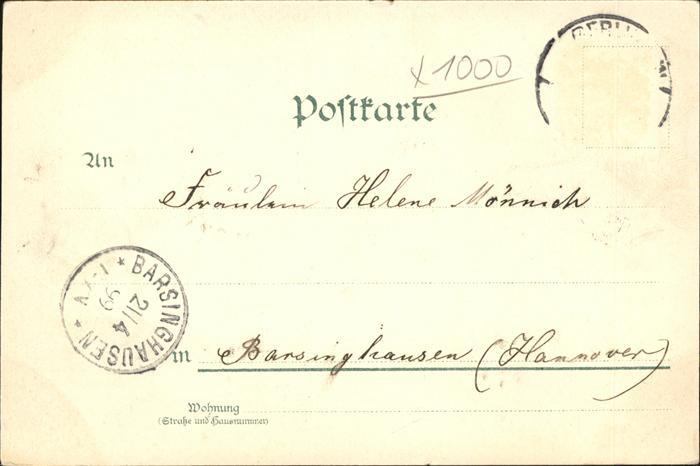 BERLIN
x1000
Postkarte
An
Fräulein Helene Mönnich
* BARSINGHAUSEN *
21/4
99
in Barsinghausen (Hannover)
Wohnung
(Straße und Hausnummer)